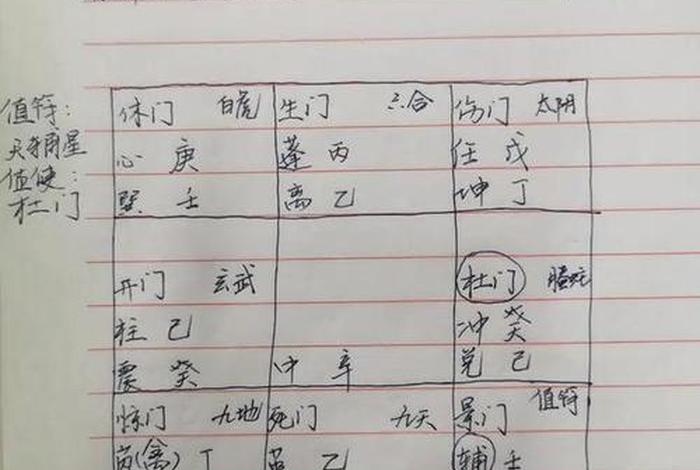 值符:
天辅星
值使:
杜门
休门 白虎 生门 六合 伤门 太阴
心 庚 蓬 丙 任 戊
巽 壬 离 乙 坤 丁
开门 玄武 杜门 螣蛇
柱 己 冲 癸
震 癸 中 辛 兑 己
惊门 九地 死门 九天 景门 值符
芮(禽) 丁 乙 辅 壬